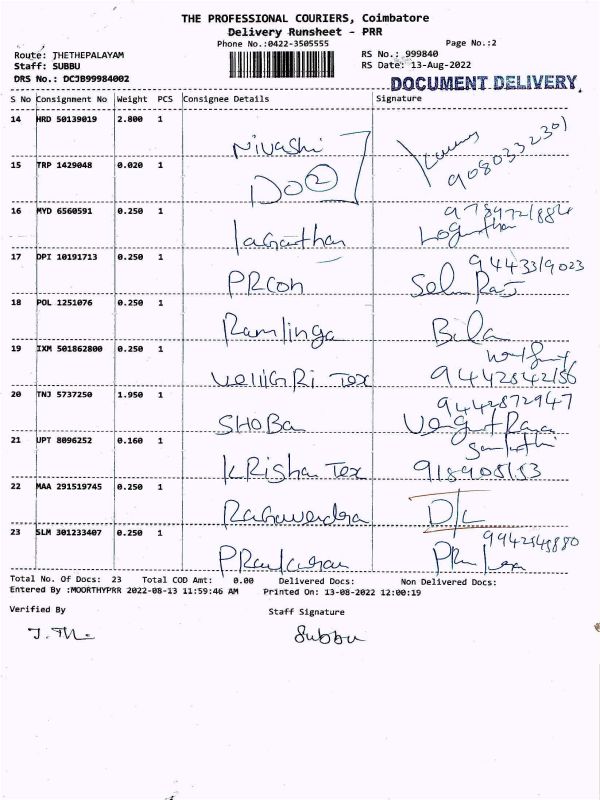 THE PROFESSIONAL COURIERS, Coimbatore
Delivery Runsheet - PRR
Phone No.:0422-3505555
Page No.:2
Route: JHETHEPALAYAM
RS No.: 999840
Staff: SUBBU
RS Date: 13-Aug-2022
DRS No.: DCJB99984002
DOCUMENT DELIVERY.
S No Consignment No Weight PCS Consignee Details Signature
14 HRD 50139019 2.800 1
Nivashi 9080332301
15 TRP 1429048 0.020 1
Do 2
16 MYD 6560591 0.250 1
Loganathan
17 DPI 10191713 0.250 1
9443319023
PRCon Selva Raj
18 POL 1251076 0.250 1
Ramlinga Bala
19 IXM 501862800 0.250 1
Velligiri Tex 9442842156
20 TNJ 5737250 1.950 1
9442872947
SHOBa
21 UPT 8096252 0.160 1
KRishan Tex
22 MAA 291519745 0.250 1
Ragavendra D/L
23 SLM 301233407 0.250 1
Total No. Of Docs: 23 Total COD Amt: 0.00 Delivered Docs: Non Delivered Docs:
Entered By :MOORTHYPRR 2022-08-13 11:59:46 AM Printed On: 13-08-2022 12:00:19
Verified By Staff Signature
Subbu